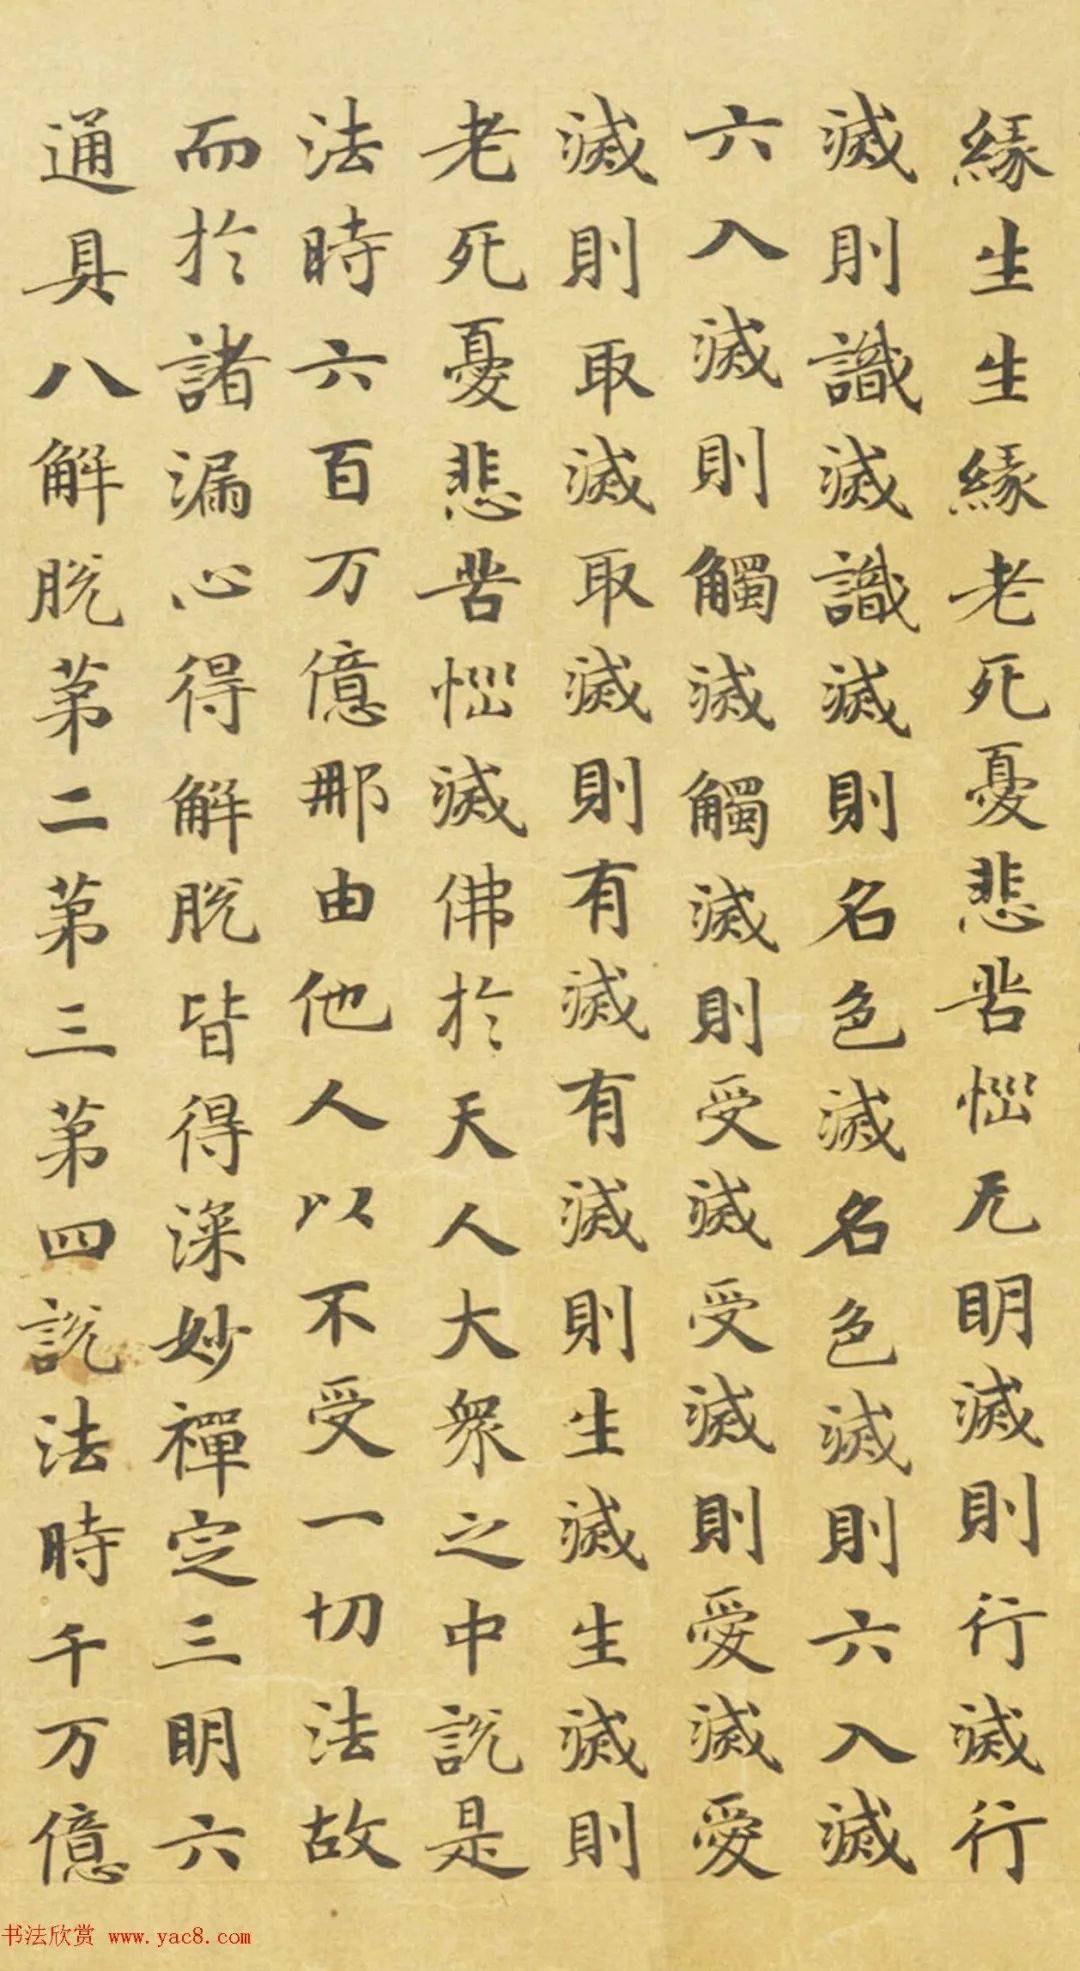 緣生生緣老死憂悲苦惱无明滅則行滅行
滅則識滅識滅則名色滅名色滅則六入滅
六入滅則觸滅觸滅則受滅受滅則愛滅愛
滅則取滅取滅則有滅有滅則生滅生滅則
老死憂悲苦惱滅佛於天人大眾之中說是
法時六百万億那由他人以不受一切法故
而於諸漏心得解脫皆得深妙禪定三明六
通具八解脫第二第三第四說法時千万億
书法欣赏 www.yac8.com